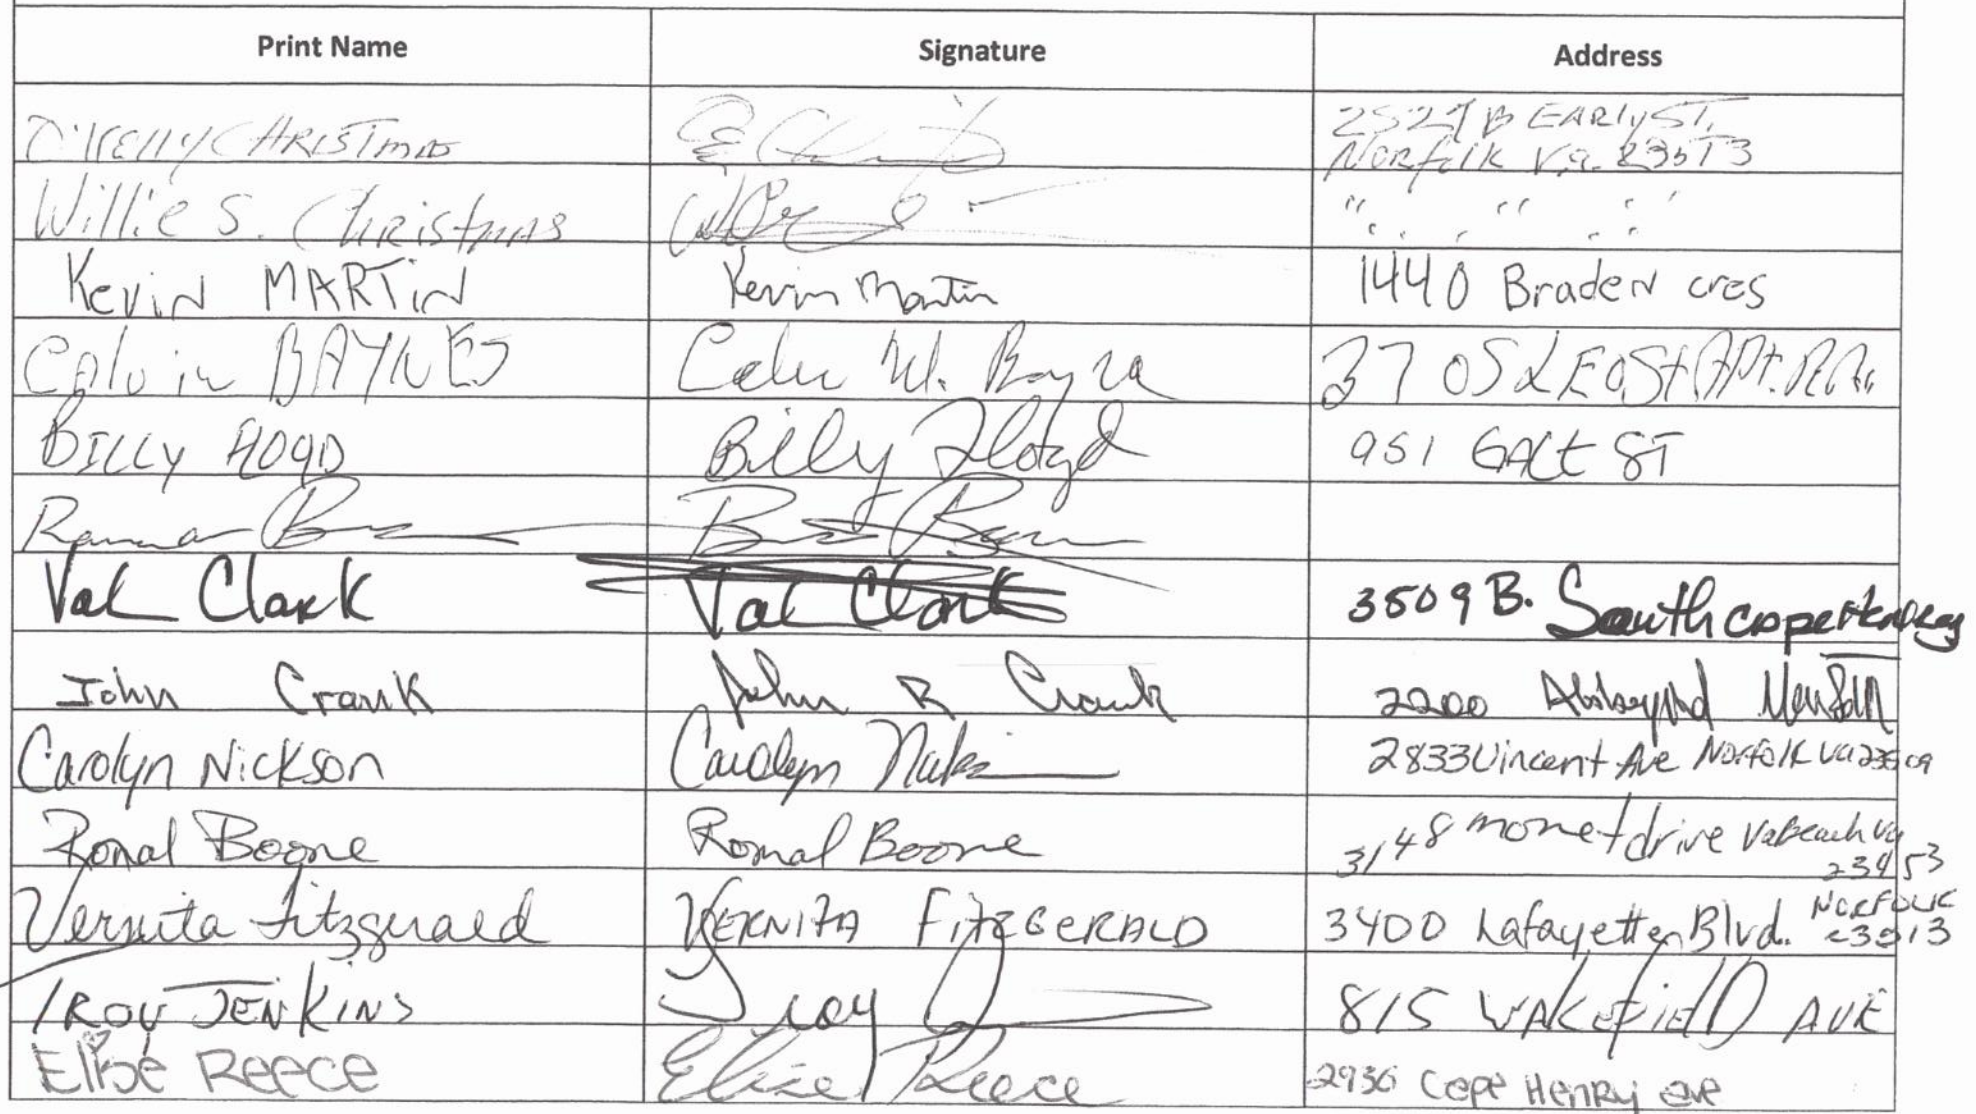 Print Name Signature Address
D. Kelly CHRISTMAS 2529 B EARLY ST,
Norfolk Va. 23513
Willie S. Christmas " " "
Kevin MARTIN Kevin Martin 1440 Braden cres
Calvin BAYNES Calvin W. Bayne
BILLY FLOYD Billy Floyd 951 GALT ST
Val Clark Val Clark 3509 B. South cape Henry
John Crank John R Crank 2200
Carolyn Nickson Carolyn Nickson 2833 Vincent Ave Norfolk Va 23509
Ronal Boone Ronal Boone 3148 monet drive Va beach Va
23453
Vernita Fitzgerald VERNITA FITZGERALD 3400 Lafayette Blvd. NORFOLK
23513
TROY JENKINS Troy J 815 WAKEfiElD AVE
Elise Reece Elise Reece 2936 Cape Henry ave